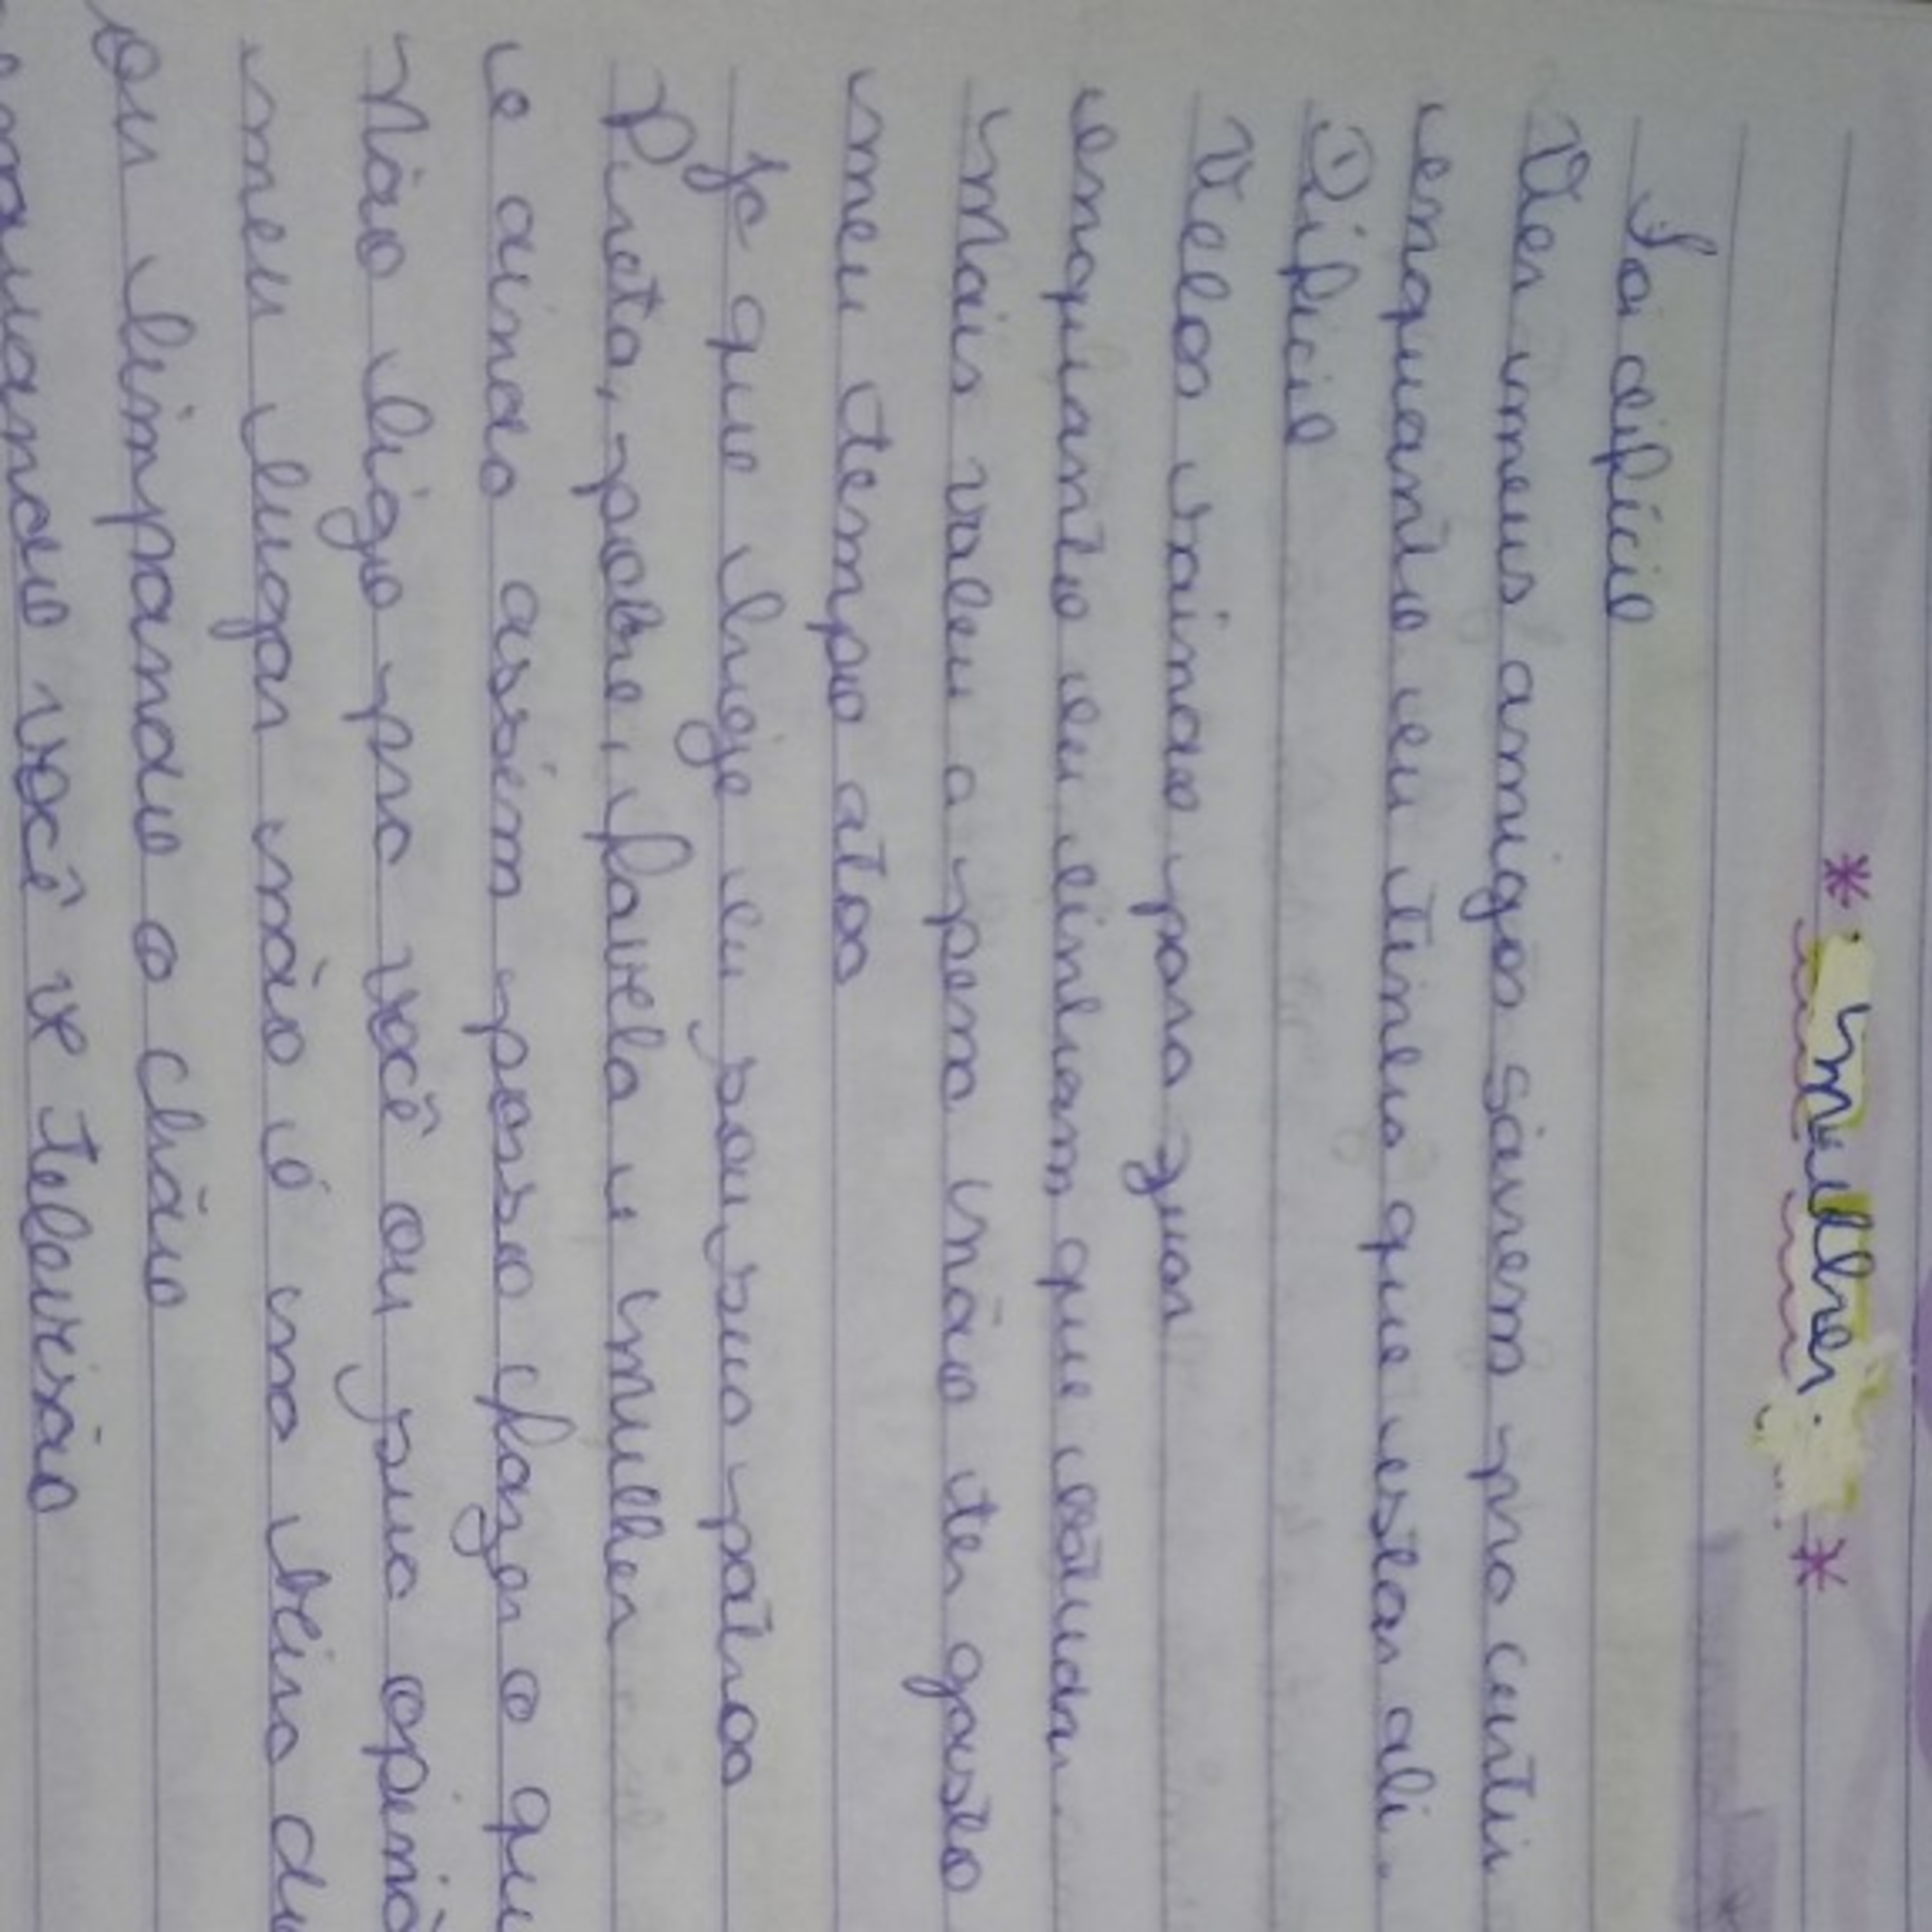 * Mulher. *
Foi dificil
Ver meus amigos sairem pra curtir
enquanto eu tinha que estar ali.
Dificil
Velos saindo para zuar
enquanto eu tinham que estudar
Mais valeu a pena não ter gasto
meu tempo atoa
Ja que hoje eu sou sua patroa
Preta, pobre, favela e mulher
e ainda assim posso fazer o qu
Não ligo pra você ou sua opiniã
meu lugar não é na beira du
ou limpando o chão
enquando você ve Televisão